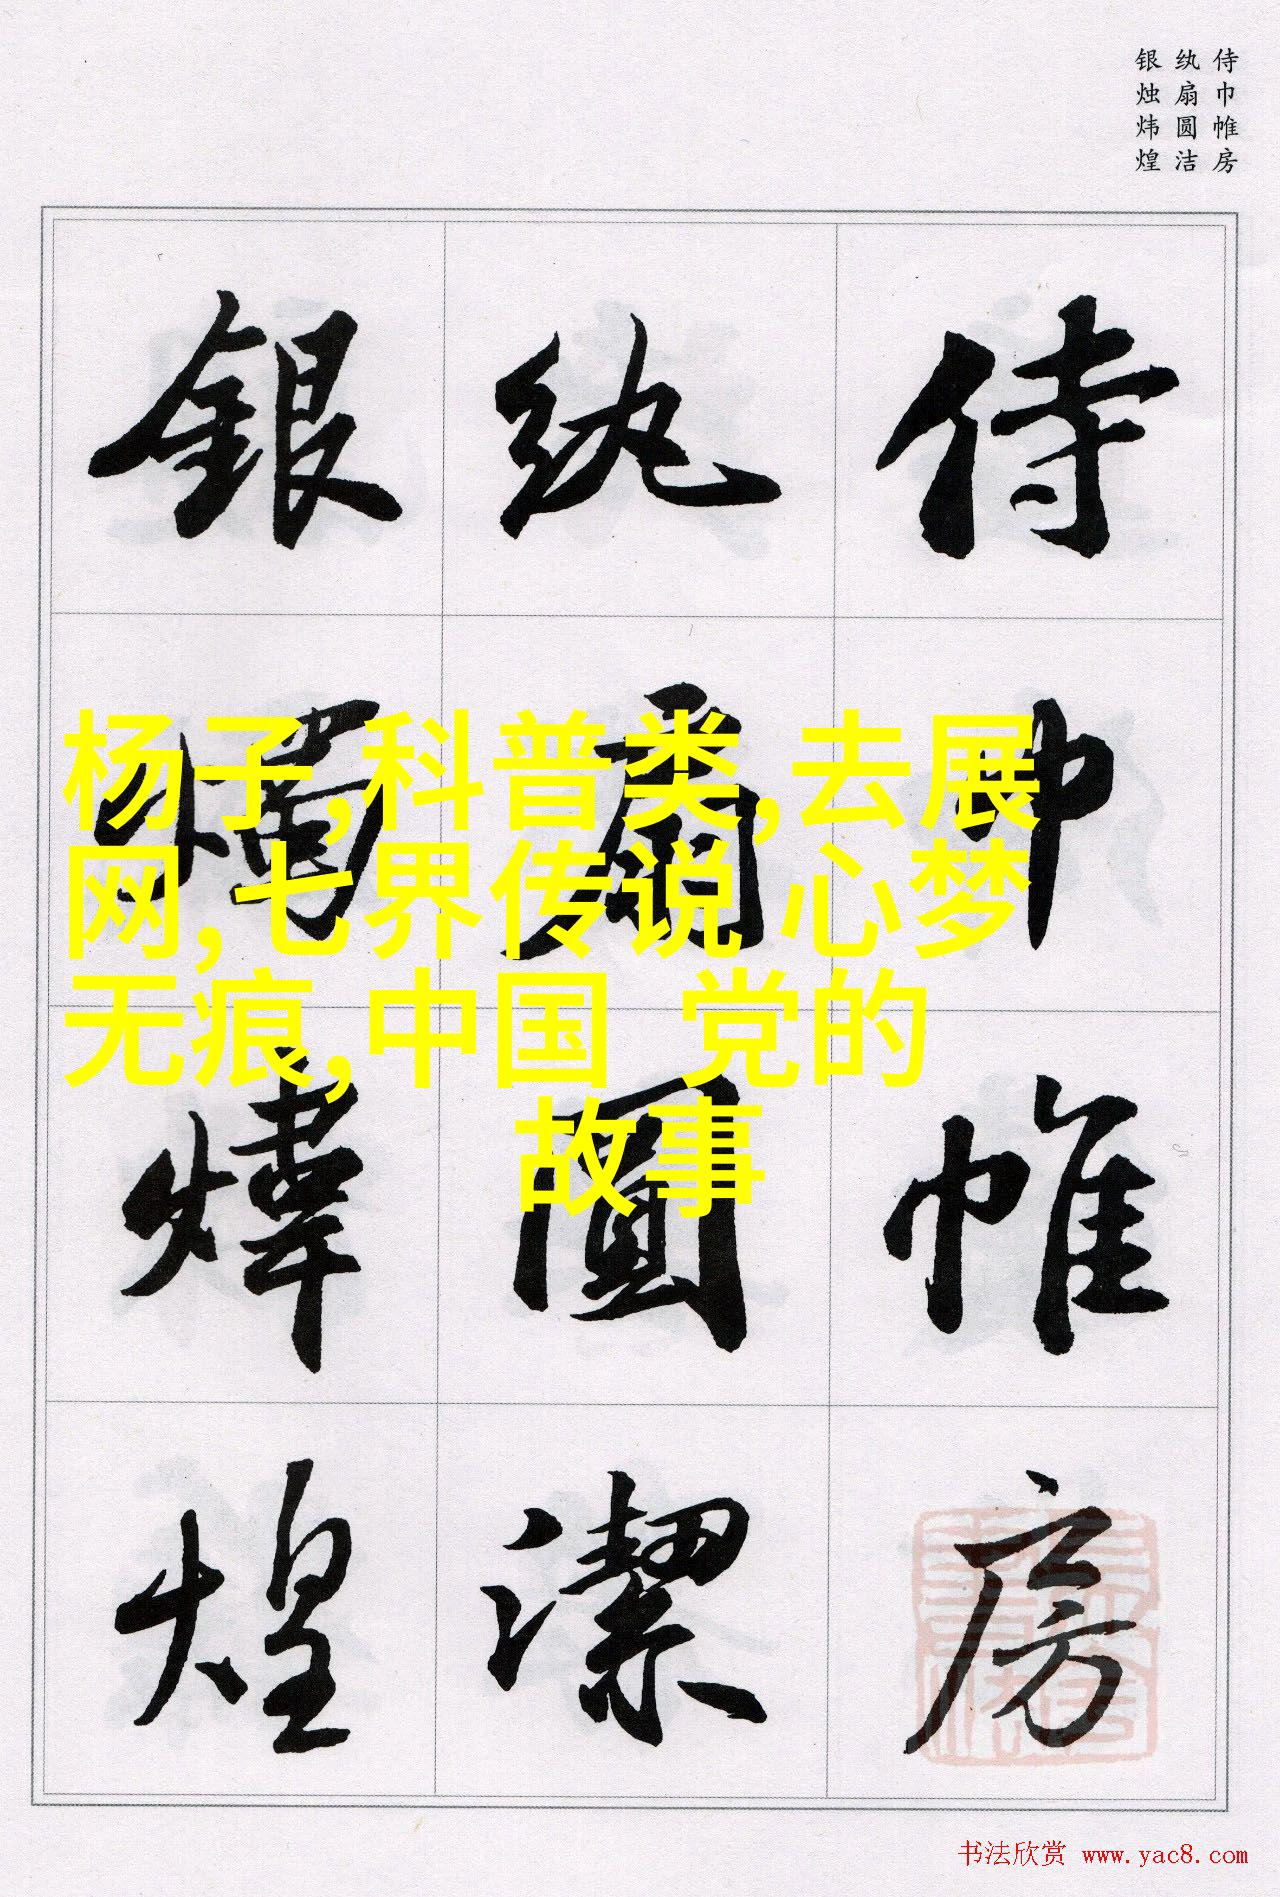 侍巾帷房
纨扇圆洁
银烛炜煌
侍巾帷房
紈扇圓潔
銀燭煒煌
杨子,科普类,去展
网,七界传说 心梦
无痕,中国 党的
故事
书法欣赏 www.yac8.com